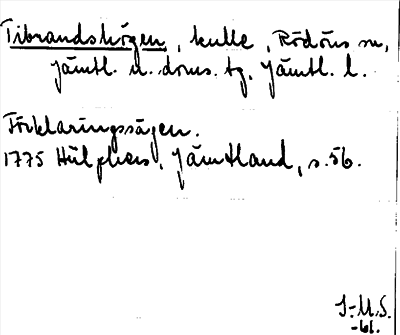 Tibrandshögen, kulle, Rödöns sn,
Jämtl. n. doms. tg, Jämtl. l.
Förklaringssägen.
1775 Hülphers, Jämtland, s. 56.
I-M.S.
-61.